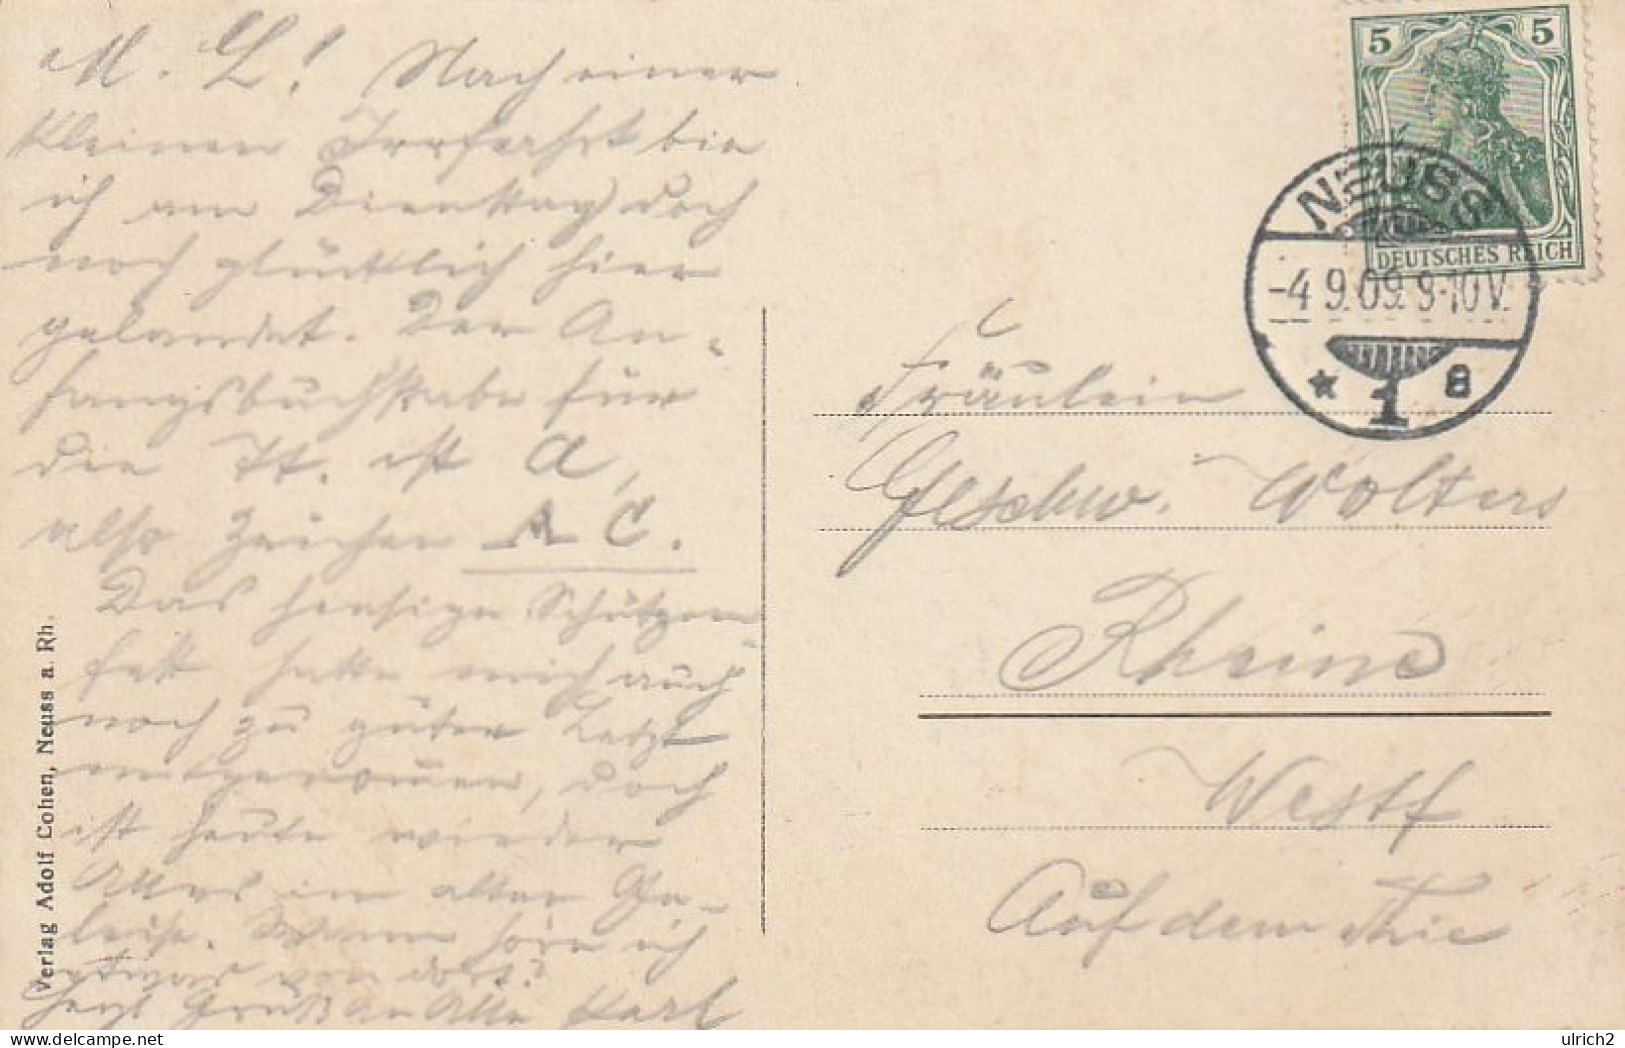 M. L! Nach einer
kleinen Irrfahrt bin
ich am Dienstag doch
noch glücklich hier
gelandet. Der An-
fangsbuchstabe für
die Tt. ist a,
also Zeichen A C.
Das hiesige Schützen
fest hatte mich auch
noch zu guter Letzt
mitgenommen, doch
ist heute wieder
Alles im alten Ge-
leise. Wann höre ich
etwas von dort?
Herzl Gruß an Alle Karl
Verlag Adolf Cohen, Neuss a. Rh.
5 5
DEUTSCHES REICH
NEUSS
-4.9.09. 9-10V.
* 1 a
Fräulein
Geschw. Wolters
Rheine
Westf
Auf dem Thie
delcampe.net
ulrich2